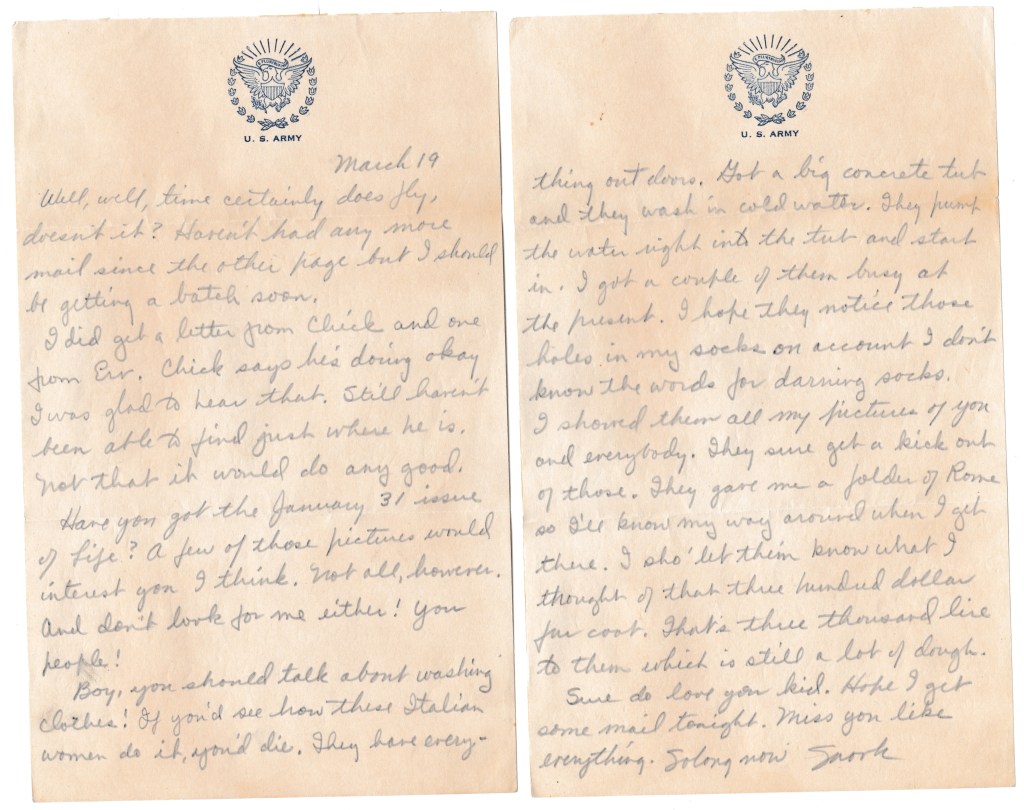 U. S. ARMY
March 19
Well, well, time certainly does fly,
doesn't it? Haven't had any more
mail since the other page but I should
be getting a batch soon.
I did get a letter from Chick and one
from Erv. Chick says he's doing okay
I was glad to hear that. Still haven't
been able to find just where he is.
Not that it would do any good.
Have you got the January 31 issue
of Life? A few of those pictures would
interest you I think. Not all, however.
And don't look for me either! You
people!
Boy, you should talk about washing
clothes! If you'd see how these Italian
women do it, you'd die. They have every-
U. S. ARMY
thing out doors. Got a big concrete tub
and they wash in cold water. They pump
the water right into the tub and start
in. I got a couple of them busy at
the present. I hope they notice those
holes in my socks on account I don't
know the words for darning socks.
I showed them all my pictures of you
and everybody. They sure get a kick out
of those. They gave me a folder of Rome
so I'll know my way around when I get
there. I sho' let them know what I
thought of that three hundred dollar
fur coat. That's three thousand lire
to them which is still a lot of dough.
Sure do love you kid. Hope I get
some mail tonight. Miss you like
everything. So long now Snork